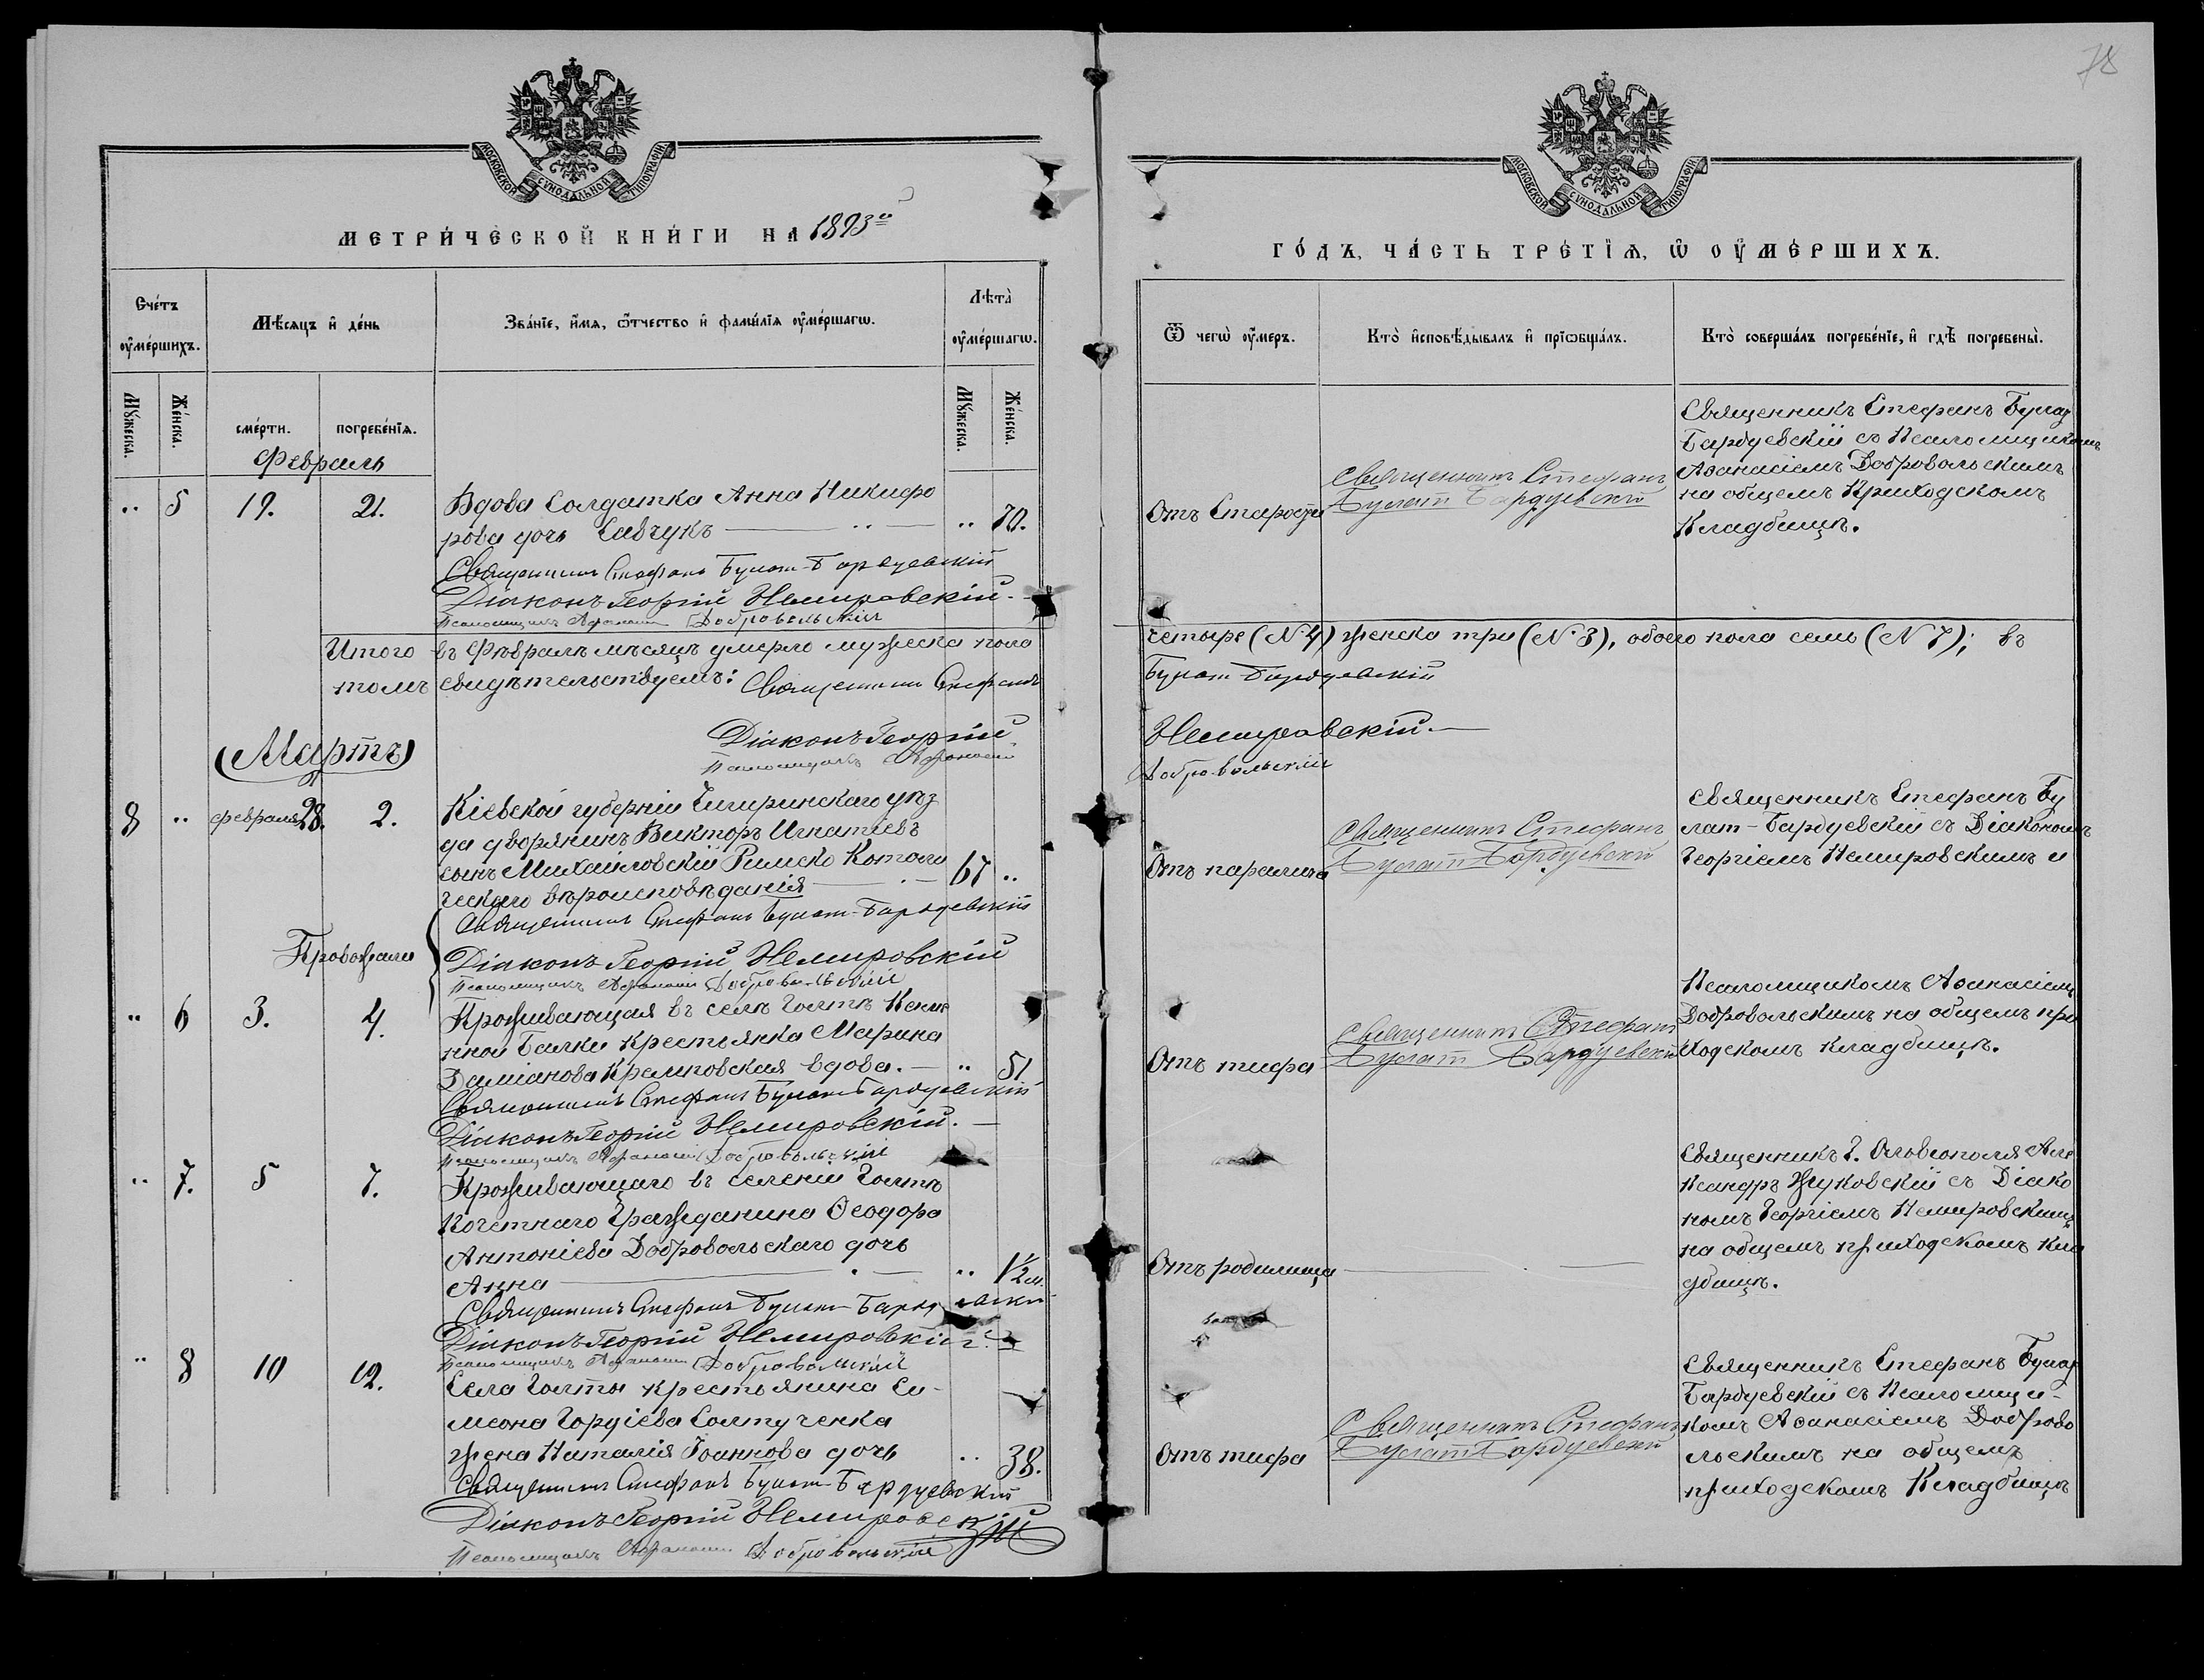 78
МОСКОВСКОЙ СѴНОДАЛЬНОЙ ТИПОГРАФІИ
МОСКОВСКОЙ СѴНОДАЛЬНОЙ ТИПОГРАФІИ
МЕТРИ́ЧЕСКОЙ КНИ́ГИ НА 1893й
ГО́ДЪ, ЧА́СТЬ ТРЕ́ТЇѦ, Ѡ҆ ОУ҆МЕ́РШИХЪ.
Сче́тъ оу҆ме́ршихъ.
Мѣ́сяцъ и҆ де́нь
Зва́нїе, и҆́мя, ѻ҆́тчество и҆ фамѝлїя оу҆ме́ршагѡ.
Лѣта̀ оу҆ме́ршагѡ.
Ѿ чегѡ̀ оу҆́меръ.
Кто̀ и҆сповѣ́дывалъ и҆ прїѡбща́лъ.
Кто̀ соверша́лъ погребе́нїе, и҆ гдѣ̀ погребены̀.
Мꙋ́жеска.
Же́нска.
сме́рти.
погребе́нїя.
Мꙋ́жеска.
Же́нска.
Февраль
„ 5 19. 21. Вдова Солдатка Анна Никифо
рова дочь Савчукъ — „ — „ 70.
Священникъ Стефанъ Булат-Бардуевскій
Діаконъ Георгій Немировскій.
Псаломщикъ Афанасій Добровольскій
Отъ Старости
Священникъ Стефанъ
Булат Бардуевскій
Священникъ Стефанъ Булат
Бардуевскій съ Псаломщикомъ
Аѳанасіемъ Добровольскимъ
на общемъ Приходскомъ
Кладбищѣ.
Итого въ Февралѣ мѣсяцѣ умерло мужеска пола
четыре (№ 4) женска три (№ 3), обоего пола семь (№ 7); въ
томъ свидѣтельствуемъ: Священникъ Стефанъ
Булат Бардуевскій
Діаконъ Георгій
Немировскій.
Псаломщикъ Афанасій
Добровольскій
(Мартъ)
8 „ февраля 28. 2. Кіевской губерніи Чигиринскаго уѣз
да дворянинъ Викторъ Игнатіевъ
сынъ Михаиловскій Римско Католи
ческаго вѣроисповѣданія — 67 „
Священникъ Стефанъ Булат-Бардуевскій
Провожали
Діаконъ Георгій Немировскій
Псаломщикъ Афанасій Добровольскій
Отъ паралича
Священникъ Стефанъ
Булат Бардуевскій
Священникъ Стефанъ Бу
лат-Бардуевскій съ Діакономъ
Георгіемъ Немировскимъ и
„ 6 3. 4. Проживающая въ селѣ Голтѣ
Балки крестьянка Марина
Даміанова вдова. — „ 51
Священникъ Стефанъ Булат Бардуевскій
Діаконъ Георгій Немировскій.
Псаломщикъ Афанасій Добровольскій
Отъ тифа
Священникъ Стефанъ
Булат Бардуевскій
Псаломщикомъ Аѳанасіемъ
Добровольскимъ на общемъ при
ходскомъ кладбищѣ.
„ 7. 5 7. Проживающаго въ селеніи Голтѣ
Почетнаго Гражданина Ѳеодора
Антоніева Добровольскаго дочь
Анна — „ 1½ м.
Священникъ Стефанъ Булат Бардуевскій
Діаконъ Георгій Немировскій.
Псаломщикъ Афанасій Добровольскій
Отъ родимица
Священникъ г. Ольвіополя Але
ксандръ Жуковскій съ Діако
номъ Георгіемъ Немировскимъ
на общемъ приходскомъ кла
дбищѣ.
„ 8 10 12. Села Голты крестьянина Си-
меона Гордіева Солтученка
жена Наталія Іоаннова дочь „ 38.
Священникъ Стефанъ Булат-Бардуевскій
Діаконъ Георгій Немировскій
Псаломщикъ Афанасій Добровольскій
Отъ тифа
Священникъ Стефанъ
Булат Бардуевскій
Священникъ Стефанъ Булат
Бардуевскій съ Псаломщи-
комъ Аѳанасіемъ Доброво
льскимъ на общемъ
приходскомъ Кладбищѣ